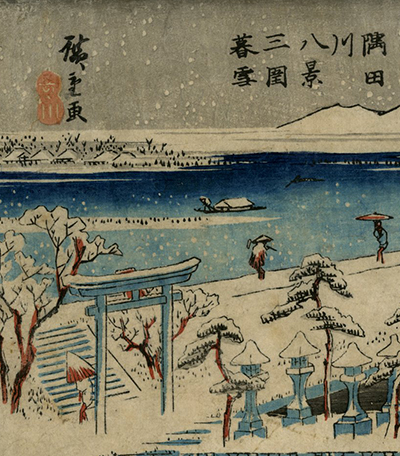 隅田
川
八景
三圍
暮雪
廣重画